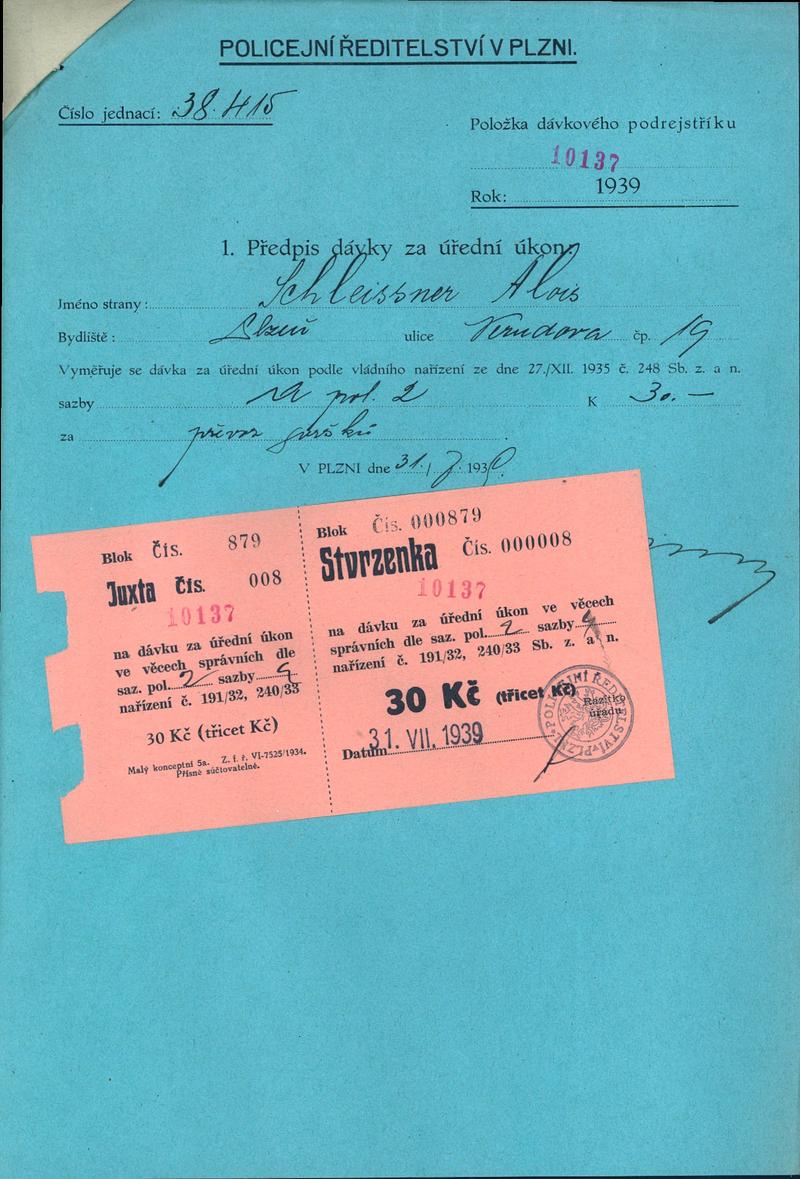 POLICEJNÍ ŘEDITELSTVÍ V PLZNI.
Číslo jednací: 38.415
Položka dávkového podrejstříku
10137
Rok: 1939
1. Předpis dávky za úřední úkon:
Jméno strany: Schleissner Alois
Bydliště: Plzeň ulice Nerudova čp. 19
Vyměřuje se dávka za úřední úkon podle vládního nařízení ze dne 27./XII. 1935 č. 248 Sb. z. a n.
sazby pol. 2 K 30.—
za
V PLZNI dne 31./7. 1939.
Blok Čís. 879
Juxta Čís. 008
10137
na dávku za úřední úkon
ve věcech správních dle
saz. pol. 2 sazby
nařízení č. 191/32, 240/33
30 Kč (třicet Kč)
Malý konceptní 5a. Z. f. ř. VI-7525/1934.
Přísně súčtovatelné.
Blok Čís. 000879
Stvrzenka Čís. 000008
10137
na dávku za úřední úkon ve věcech
správních dle saz. pol. 2 sazby
nařízení č. 191/32, 240/33 Sb. z. a n.
30 Kč (třicet Kč)
Razítko
úřadu:
Datum 31. VII. 1939
POLICEJNÍ ŘEDITELSTVÍ V PLZNI